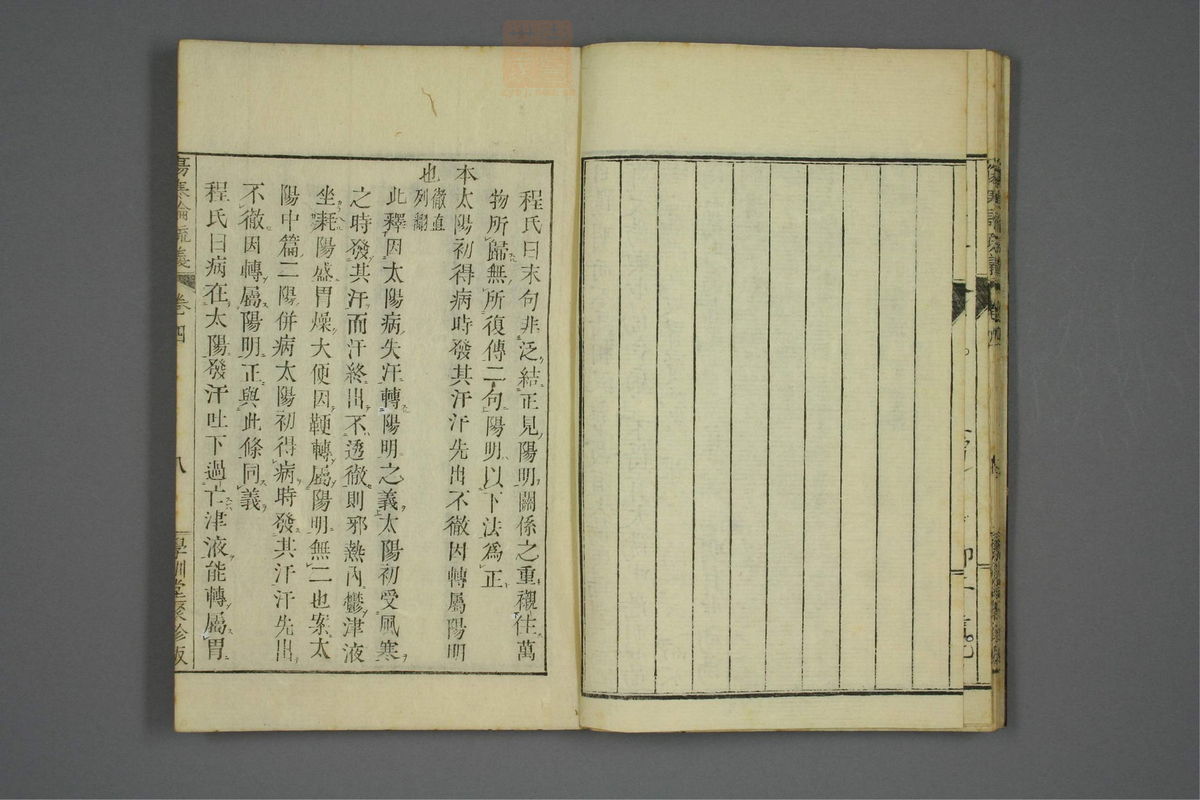 程氏曰末句非泛結正見陽明關係之重襯住萬
物所歸無所復傳二句陽明以下法爲正
本太陽初得病時發其汗汗先出不徹因轉屬陽明
也徹直列翻
此釋因太陽病失汗轉陽明之義太陽初受風寒
之時發其汗而汗終出不透徹則邪熱內鬱津液
坐耗陽盛胃燥大便因鞕轉屬陽明無二也案太
陽中篇二陽併病太陽初得病時發其汗汗先出
不徹因轉屬陽明正與此條同義
程氏曰病在太陽發汗吐下過亡津液能轉屬胃
傷寒論疏義 卷四 八 學訓堂聚珍版